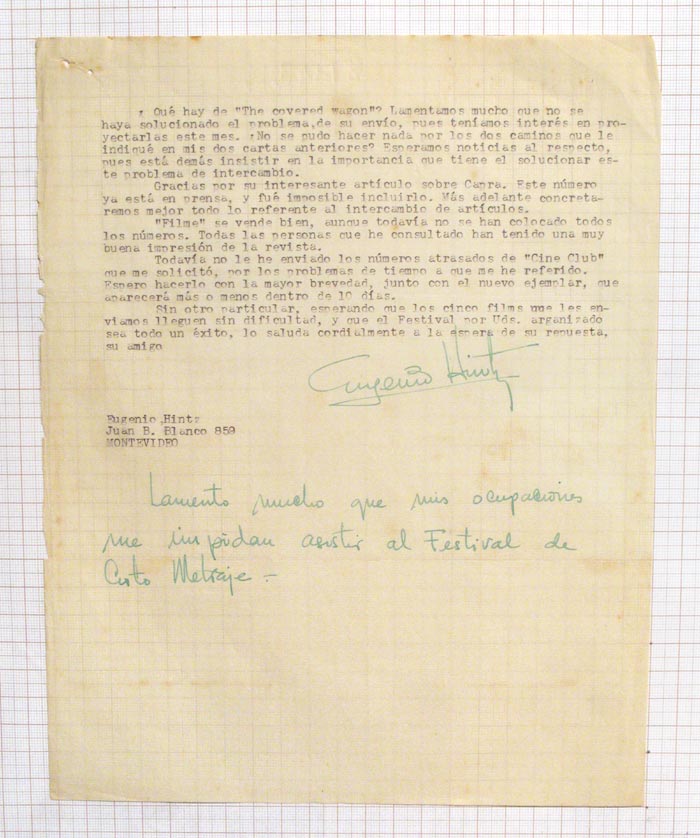 ¿ Qué hay de "The covered wagon"? Lamentamos mucho que no se
haya solucionado el problema,de su envío, pues teníamos interés en pro-
yectarlas este mes. ¿No se pudo hacer nada por los dos caminos que le
indiqué en mis dos cartas anteriores? Esperamos noticias al respecto,
pues está demás insistir en la importancia que tiene el solucionar es-
te problema de intercambio.
Gracias por su interesante artículo sobre Capra. Este número
ya está en prensa, y fué imposible incluirlo. Más adelante concreta-
remos mejor todo lo referente al intercambio de artículos.
"Filme" se vende bien, aunque todavía no se han colocado todos
los números. Todas las personas que he consultado han tenido una muy
buena impresión de la revista.
Todavía no le he enviado los números atrasados de "Cine Club"
que me solicitó, por los problemas de tiempo a que me he referido.
Espero hacerlo con la mayor brevedad, junto con el nuevo ejemplar, que
aparecerá más o menos dentro de 10 días.
Sin otro particular, esperando que los cinco films que les en-
viamos lleguen sin dificultad, y que el Festival por Uds. arganizado
sea todo un éxito, lo saluda cordialmente a la espera de su repuesta,
su amigo
Eugenio Hintz
Eugenio Hintz
Juan B. Blanco 859
MONTEVIDEO
Lamento mucho que mis ocupaciones
me impidan asistir al Festival de
Corto Metraje.-